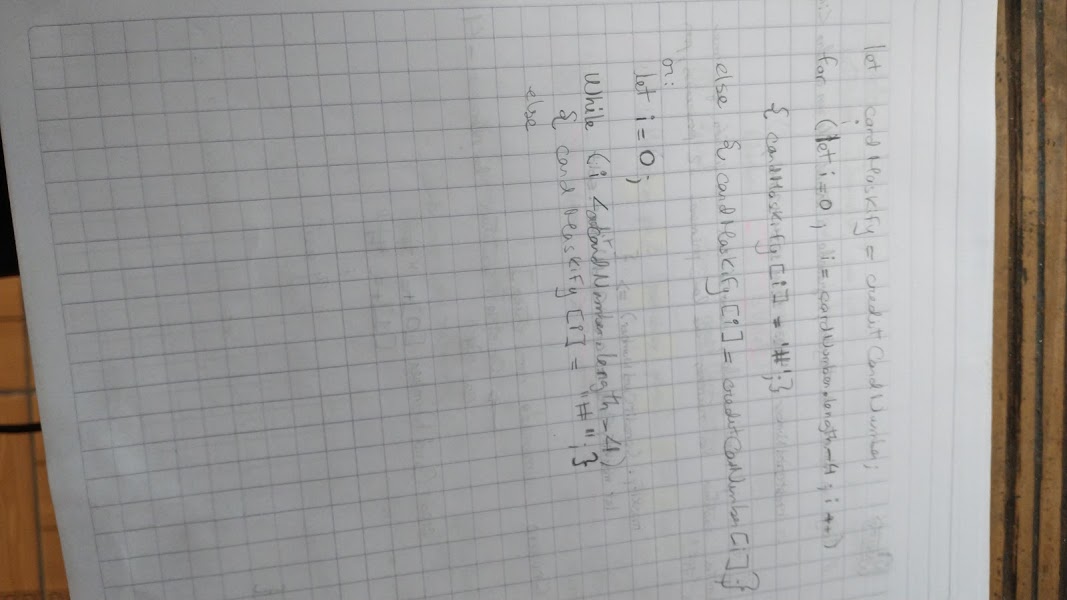 let cardMaskify = creditCardNumber;
for (let i=0, i = cardNumber.length-4; i++)
{ cardMaskify [i] = '#';}
else { cardMaskify [i] = creditCardNumber [i];}
or:
let i = 0;
While (i < cardNumber.length -4)
{ card Maskify [i] = "#";}
else